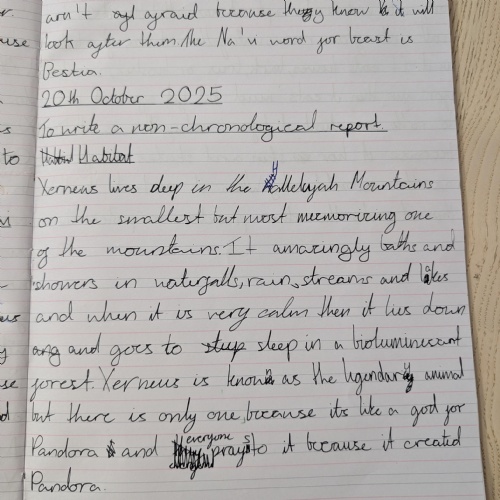 arn't afraid because they know it will
look after them. The Na'vi word for beast is
Bestia.
20th October 2025
To write a non-chronological report.
Habitat
Xerneus lives deep in the Hallelujah Mountains
on the smallest but most memorizing one
of the mountains. It amazingly baths and
showers in waterfalls, rain, streams and lakes
and when it is very calm then it lies down
and goes to sleep in a bioluminecant
forest. Xerneus is known as the legendary animal
but there is only one, because its like a god for
Pandora and everyone prays to it because it created
Pandora.